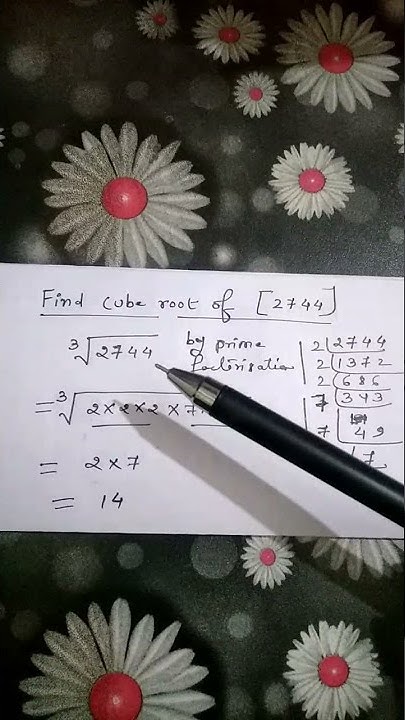 Find cube root of [2744]
∛2744 by prime factorisation
= ∛2×2×2×7
= 2×7
= 14
2 | 2744
2 | 1372
2 | 686
7 | 343
7 | 49
7